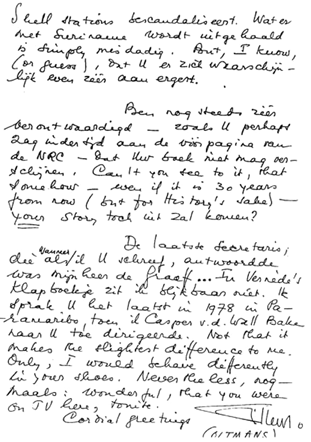 Shell stations bescandaliseert. Wat er
met Suriname wordt uitgehaald
is simply misdadig. But, I know,
(or guess), dat U er zich waarschijn-
lijk even zéér aan ergert.
Ben nog steeds zéér
verontwaardigd – zoals U perhaps
zag indertijd aan de vóórpagina van
de NRC – dat Uw boek niet mag ver-
schijnen. Can't you see to it, that
somehow – even if it is 30 years
from now (but for History's sake) –
your story toch uit zal komen?
De laatste secretaris,
die vanuit U schreef, antwoordde
was mijnheer de Graeff... In Vernède's
klapboekje zit ik blijkbaar niet. Ik
sprak U het laatst in 1978 in Pa-
ramaribo, toen ik Casper v.d. Wall Bake
naar U toe dirigeerde. Not that it
makes the slightest difference to me.
Only, I would behave differently
in your shoes. Nevertheless, nog-
maals: wonderful, that you were
on TV here, tonite.
Cordial greetings
(OLTMANS)